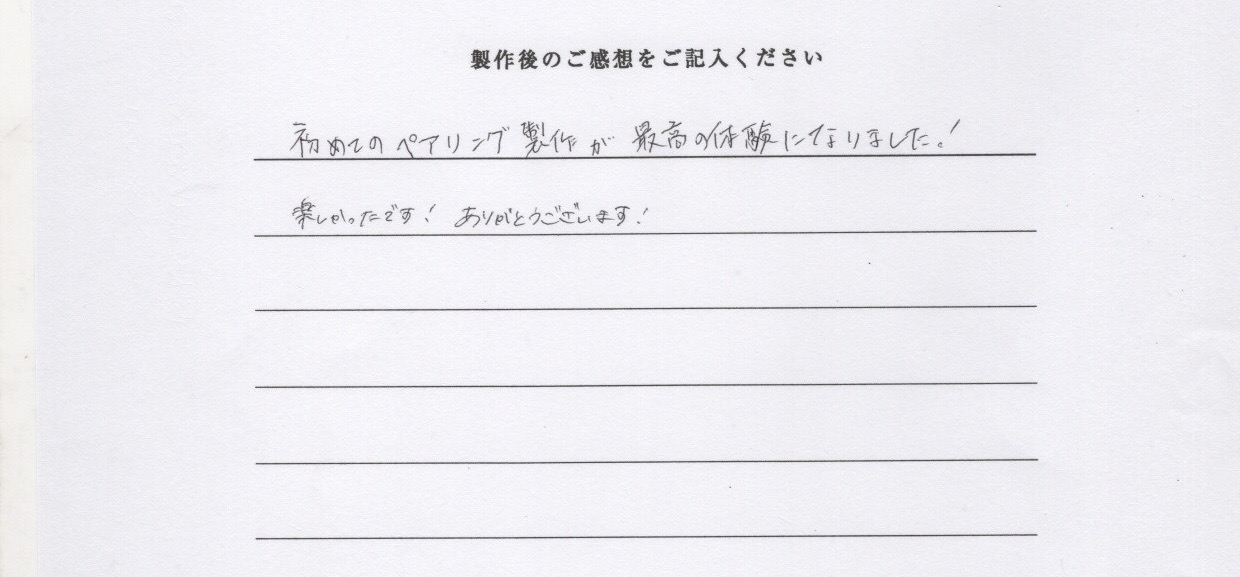 製作後のご感想をご記入ください
初めてのペアリング製作が最高の体験になりました!
楽しかったです! ありがとうございます!